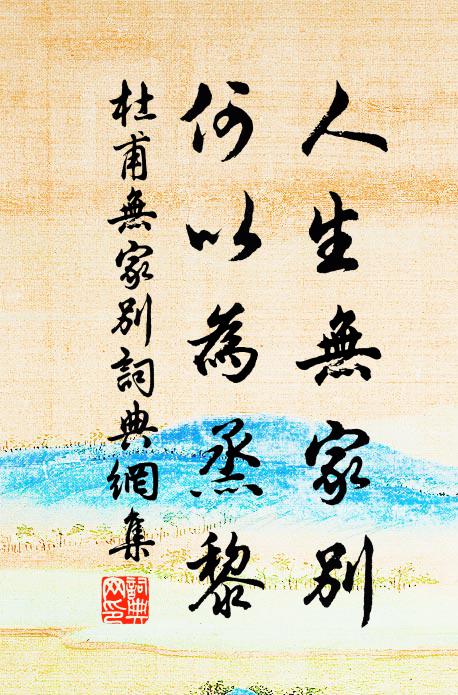 人生無家別
何以為烝黎
杜甫無家別詞典網集